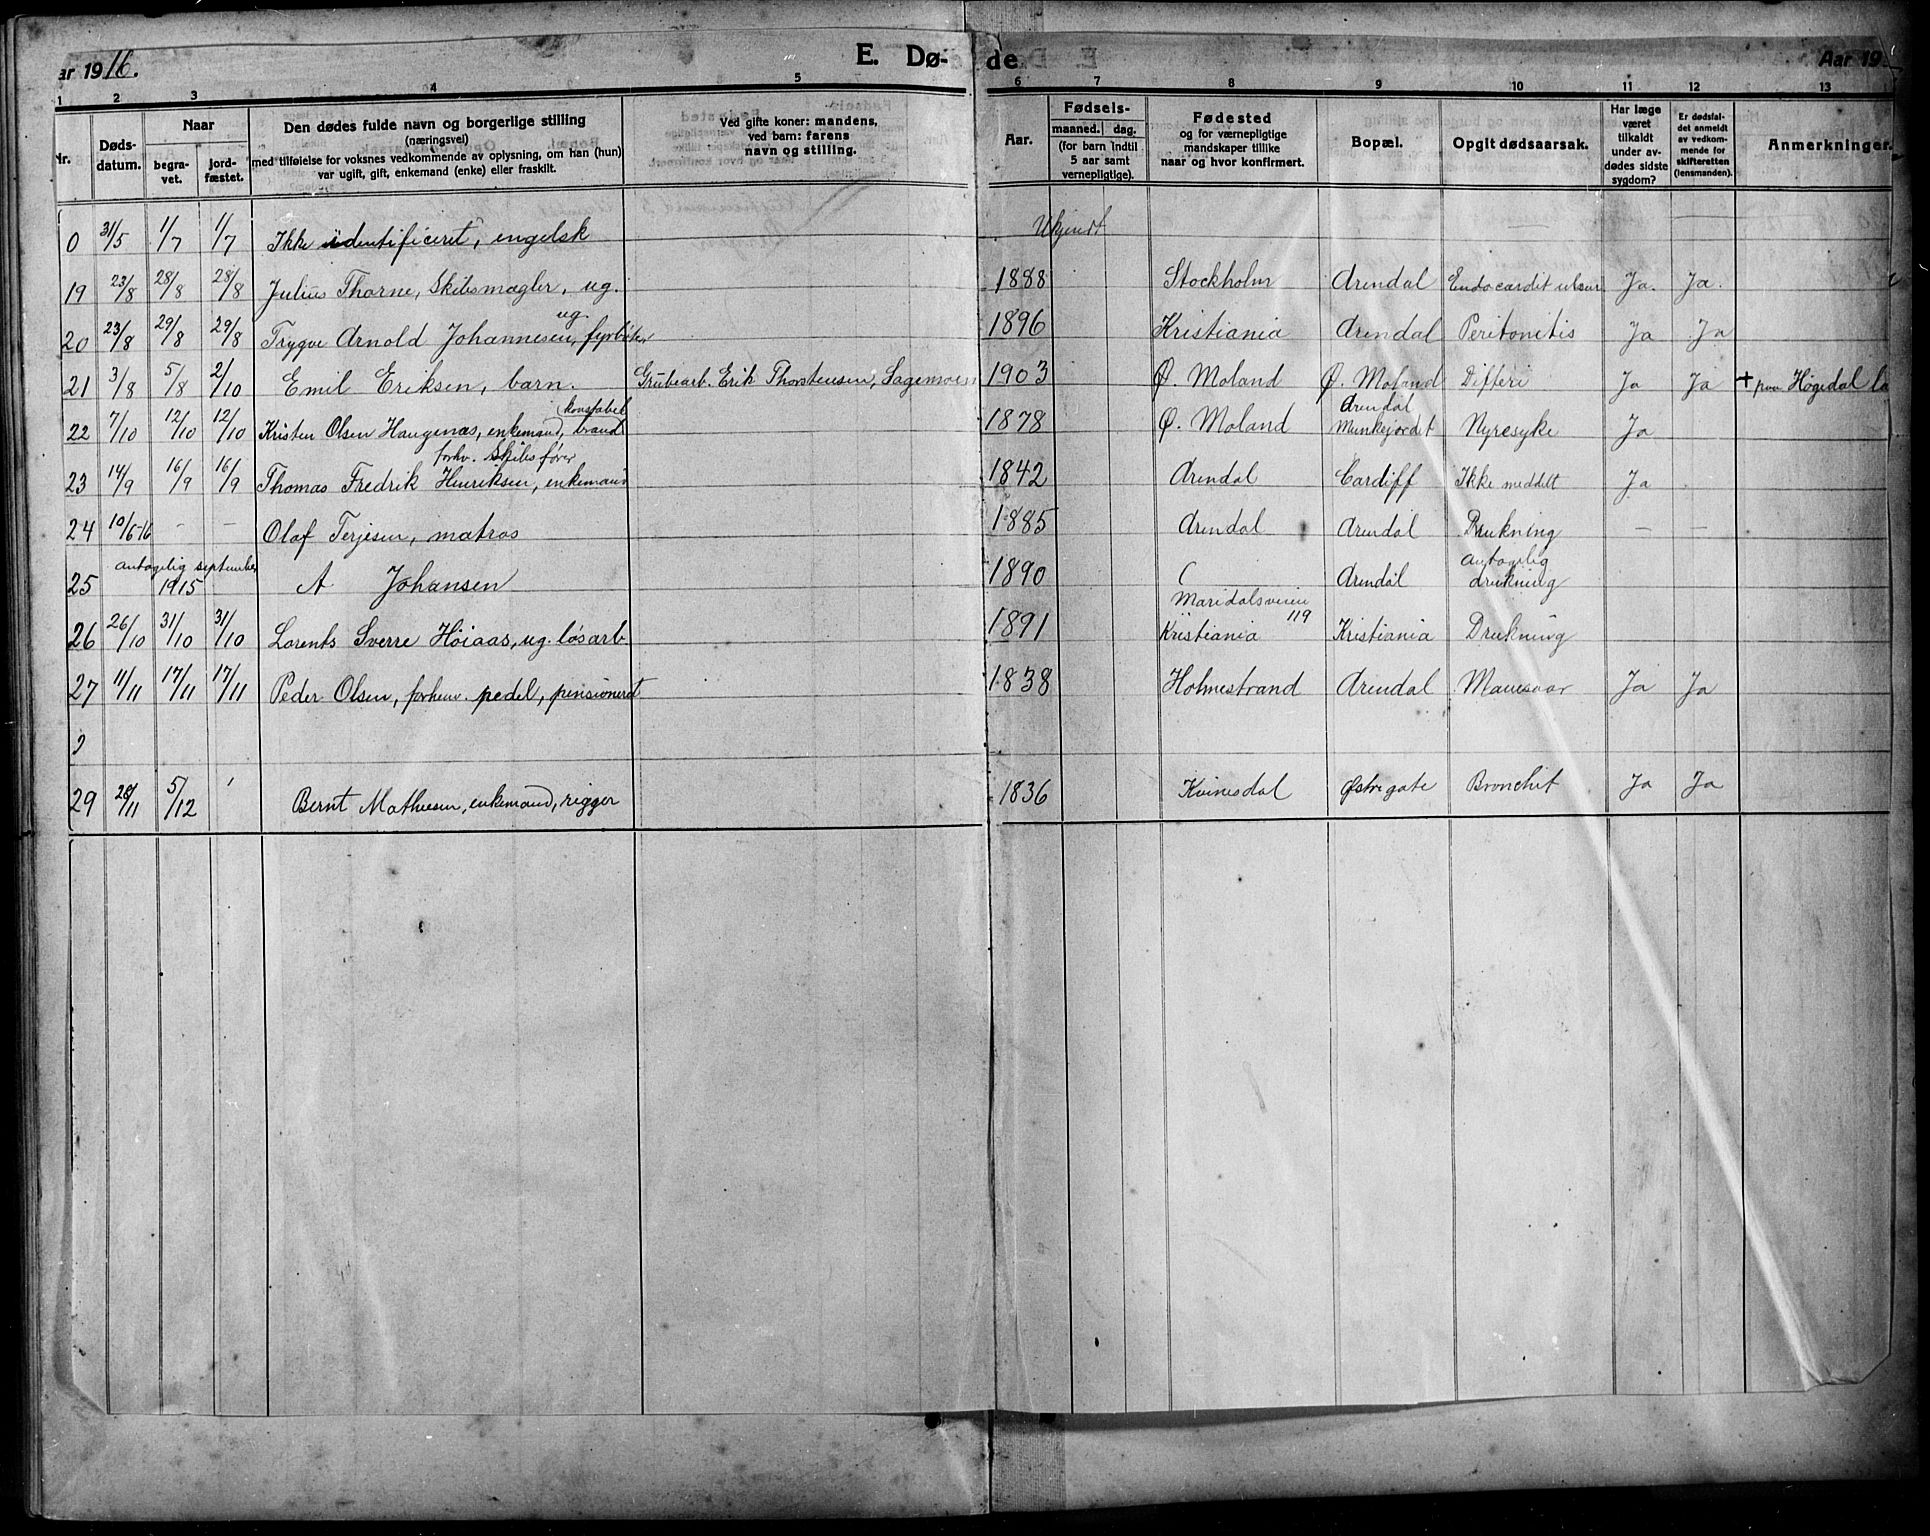 ar 1916. E. Dø- de Aar 19
1 2 3 4 5 6 7 8 9 10 11 12 13
Nr.
Døds-
datum.
Naar
begra-
vet.
jord-
fæstet.
Den dødes fulde navn og borgerlige stilling
(næringsvei)
med tilføielse for voksnes vedkommende av oplysning, om han (hun)
var ugift, gift, enkemand (enke) eller fraskilt.
Ved gifte koner: mandens,
ved barn: farens
navn og stilling.
Aar.
Fødsels-
maaned. dag.
(for barn indtil
5 aar samt
vernepligtige).
Fødested
og for værnepligtige
mandskaper tillike
naar og hvor konfirmert.
Bopæl.
Opgit dødsaarsak.
Har læge
været
tilkaldt
under av-
dødes sidste
sygdom?
Er dødsfal-
det anmeldt
av vedkom-
mende for
skifteretten
(lensmanden).
Anmerkninger.
0 31/5 1/7 1/7 Ikke identificeret, engelsk Ukjendt
19 23/8 28/8 28/8 Julius Thorne, Skibsmægler, ug. 1888 Stockholm Arendal Endocardit ulcur Ja. Ja.
ug.
20 23/8 29/8 29/8 Trygve Arnold Johannesen, fyrbøter 1896 Kristiania Arendal Peritonitis Ja Ja
21 3/8 5/8 2/10 Emil Eriksen, barn. Grubearb. Erik Thorstensen, Sagemoen 1903 Ø. Moland Ø. Moland Difteri Ja Ja + paa Høgedal la
konstabel Arendal
22 7/10 12/10 12/10 Kristen Olsen Haugenæs, enkemand, brand 1878 Ø. Moland Munkejordet Nyresyke Ja
forhv. Skibsfører
23 14/9 16/9 16/9 Thomas Fredrik Henriksen, enkemand 1842 Arendal Cardiff Ikke meddelt Ja
24 10/6-16 - - Olaf Terjesen, matros 1885 Arendal Arendal Drukning - -
antagelig september antagelig
25 1915 A Johansen 1890 Arendal drukning
Maridalsveien
119
26 26/10 31/10 31/10 Lorents Sverre Høiaas, ug. løsarb. 1891 Kristiania Kristiania Drukning
27 11/11 17/11 17/11 Peder Olsen, forhenv. pedel, pensioneret 1838 Holmestrand Arendal Mavesaar Ja Ja
29 28/11 5/12 Bernt Mathiesen, enkemand, rigger 1836 Kvinesdal Østregate Bronchit Ja Ja